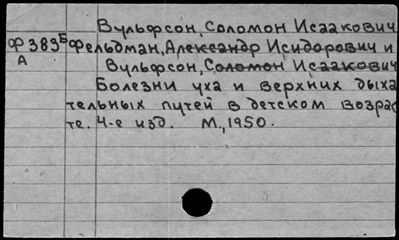 Вульфсон, Соломон Исаакович
Ф383Б Фельдман, Александр Исидорович и
А Вульфсон, Соломон Исаакович
Болезни уха и верхних дыха
тельных путей в детском возрас
те. 4-е изд. М., 1950.